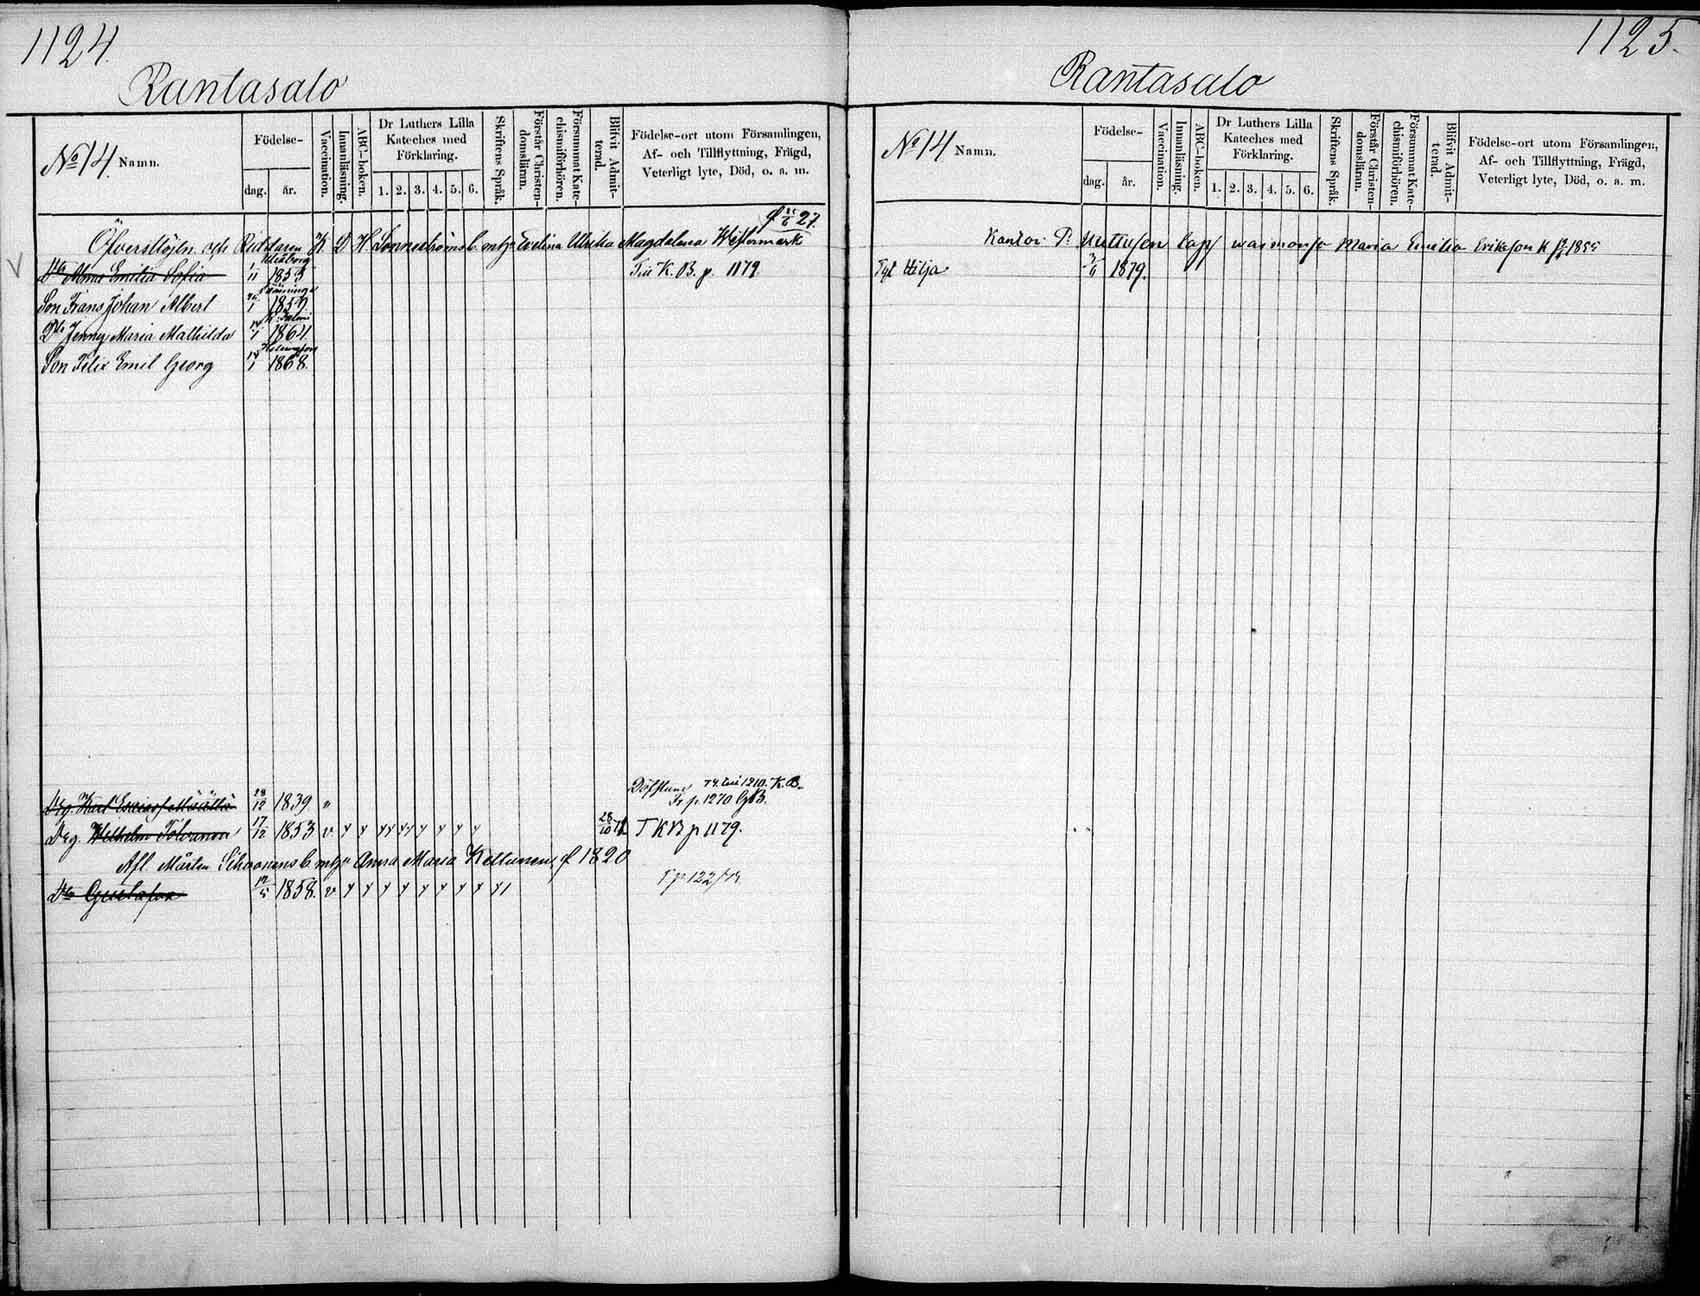 1124.
Rantasalo
No 14. Namn.
Födelse-
dag. år.
Vaccination.
Innanläsning.
ABC-boken.
Dr Luthers Lilla
Kateches med
Förklaring.
1. 2. 3. 4. 5. 6.
Skriftens Språk.
Förstår Christen-
domsläran.
Försummat Kate-
chismiförhören.
Blifvit Admit-
terad.
Födelse-ort utom Församlingen,
Af- och Tillflyttning, Frägd,
Veterligt lyte, Död, o. a. m.
27.
Öfverstlöjtn. och Riddaren K D H Lönneströms b. m. h. Evelina Ulrika Magdalena Westermark
Dtr Anna Emilia Sofia 1/11 1853 Tr. K. B. p. 1179.
Son Frans Johan Albert 1859
Dtr Jenny Maria Mathilda 1864
Helsingfors
Son Felix Emil Georg 19/1 1868.
K. B.
Drg. Karl 28/12 1839 " Fr p. 1270
Drg. Wilhelm Tolvanen 17/12 1853 v. 28/10 T K B p 1179.
Afl. Mårten Sihvonens b. m. h. Anna Maria Kettunen, f 1820
Dtr Gustafva 1858. v
1125.
Rantasalo
No 14 Namn.
Födelse-
dag. år.
Vaccination.
Innanläsning.
ABC-boken.
Dr Luthers Lilla
Kateches med
Förklaring.
1. 2. 3. 4. 5. 6.
Skriftens Språk.
Förstår Christen-
domsläran.
Försummat Kate-
chismiförhören.
Blifvit Admit-
terad.
Födelse-ort utom Församlingen,
Af- och Tillflyttning, Frägd,
Veterligt lyte, Död, o. a. m.
Kantor P. Huttusen laps waimonsa Maria Emilia Eriksson K 1855
Tyt Hilja 1879.